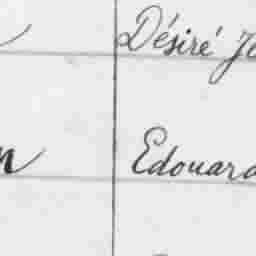 Désiré Je
n Edouard